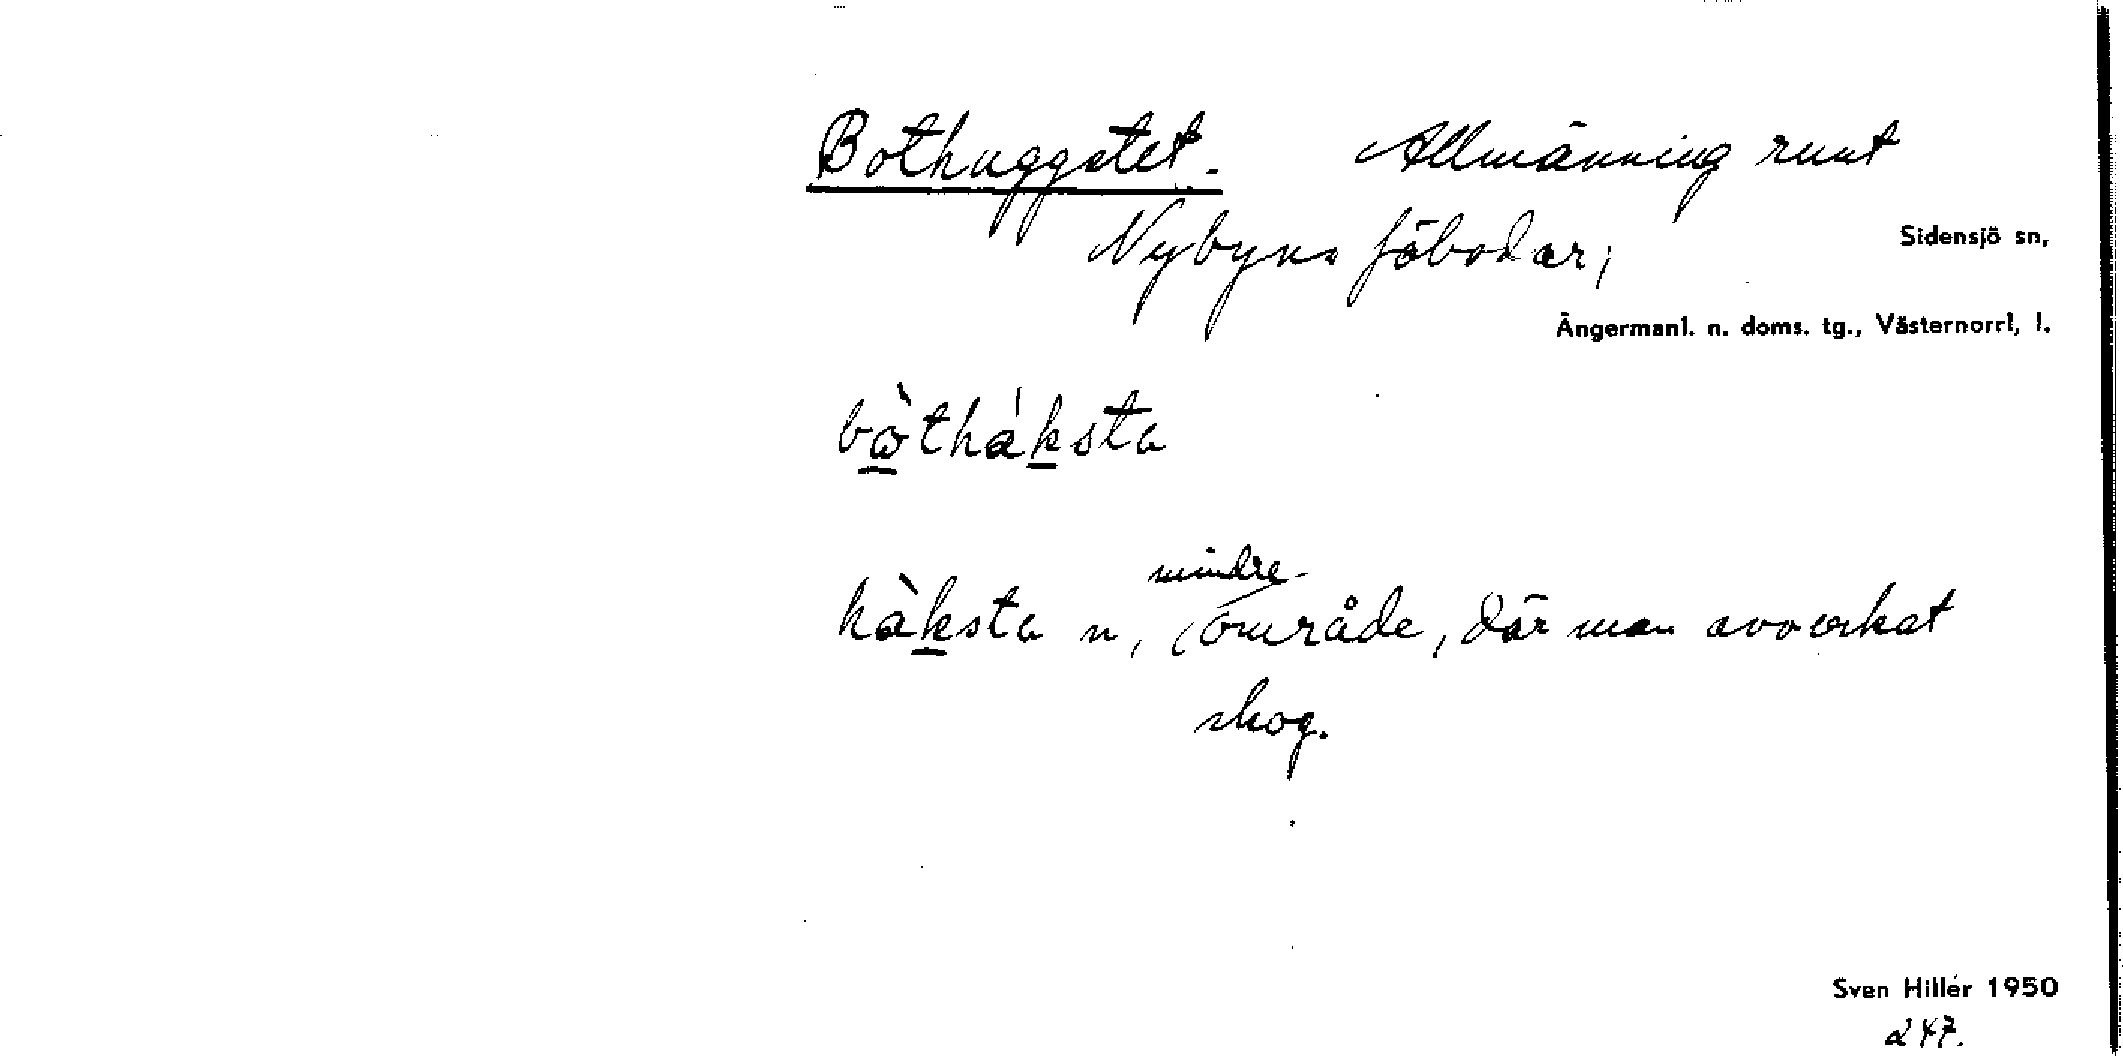 Bothuggstet. Allmänning runt
Nybyns fäbodar;
Sidensjö sn,
Ångermanl. n. doms. tg., Västernorrl, l.
mindre
n, område, där man avverkat
skog.
Sven Hillér 1950
247.